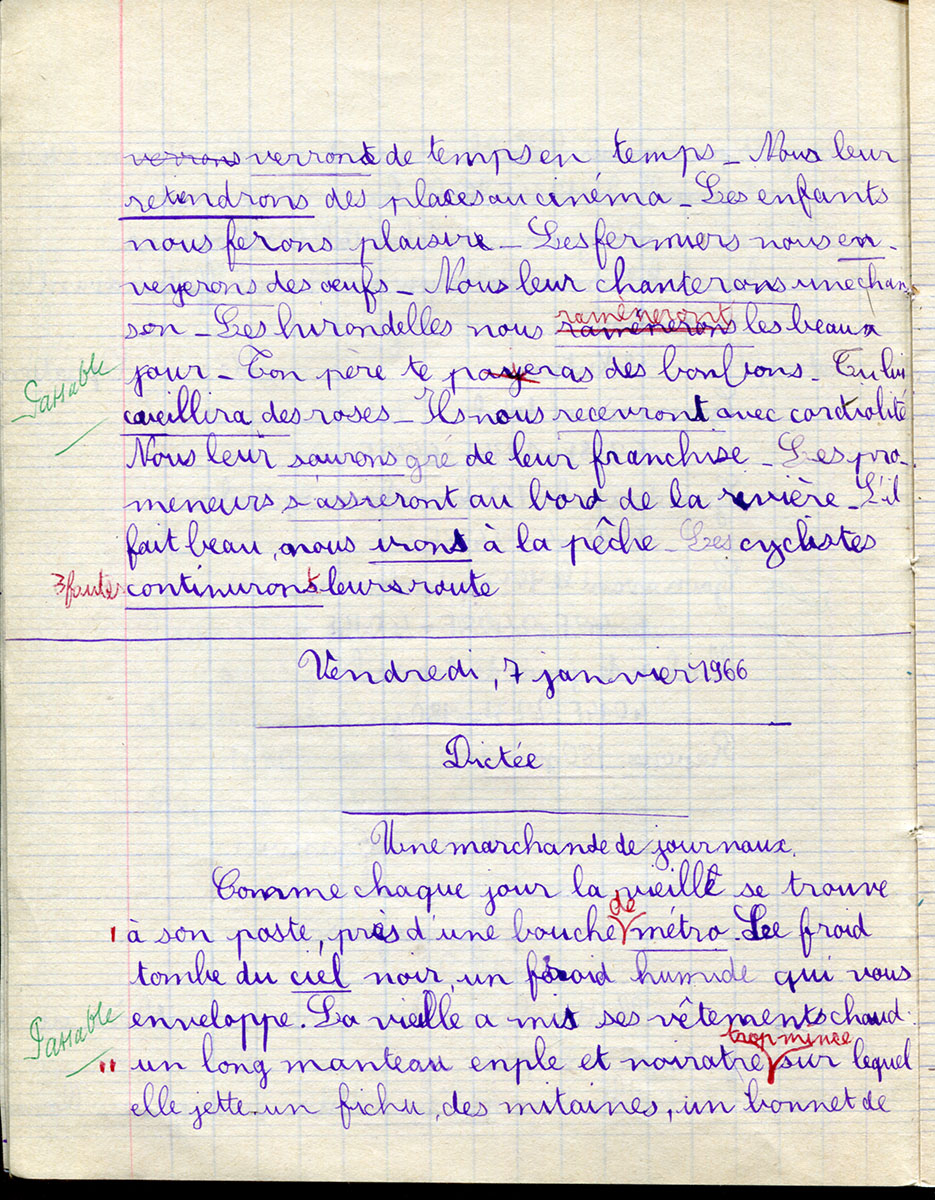 verrons verront de temps en temps _ Nous leur
retindrons des places au cinéma _ Les enfants
nous ferons plaisir _ Les fermiers nous en-
veyerons des œufs _ Nous leur chanterons une chan
son _ Les hirondelles nous ramèneront ramènerons les beaux
Passable
jour _ Ton père te payeras des bonbons _ Tu lui
cueillira des roses _ Ils nous recevront avec cordialité
Nous leur saurons gré de leur franchise _ Les pro-
meneurs s'assieront au bord de la rivière _ S'il
fait beau, nous irons à la pêche _ Les cyclistes
3 fautes continuront leurs route
Vendredi, 7 janvier 1966
Dictée
Une marchande de journaux.
Comme chaque jour la vieille se trouve
I à son poste, près d'une bouche de métro. Le froid
tombe du ciel noir, un froid humide qui vous
Passable
enveloppe. La vieille a mis ses vêtements chaud.
II un long manteau enple et noiratre trop mince sur lequel
elle jette un fichu, des mitaines, un bonnet de